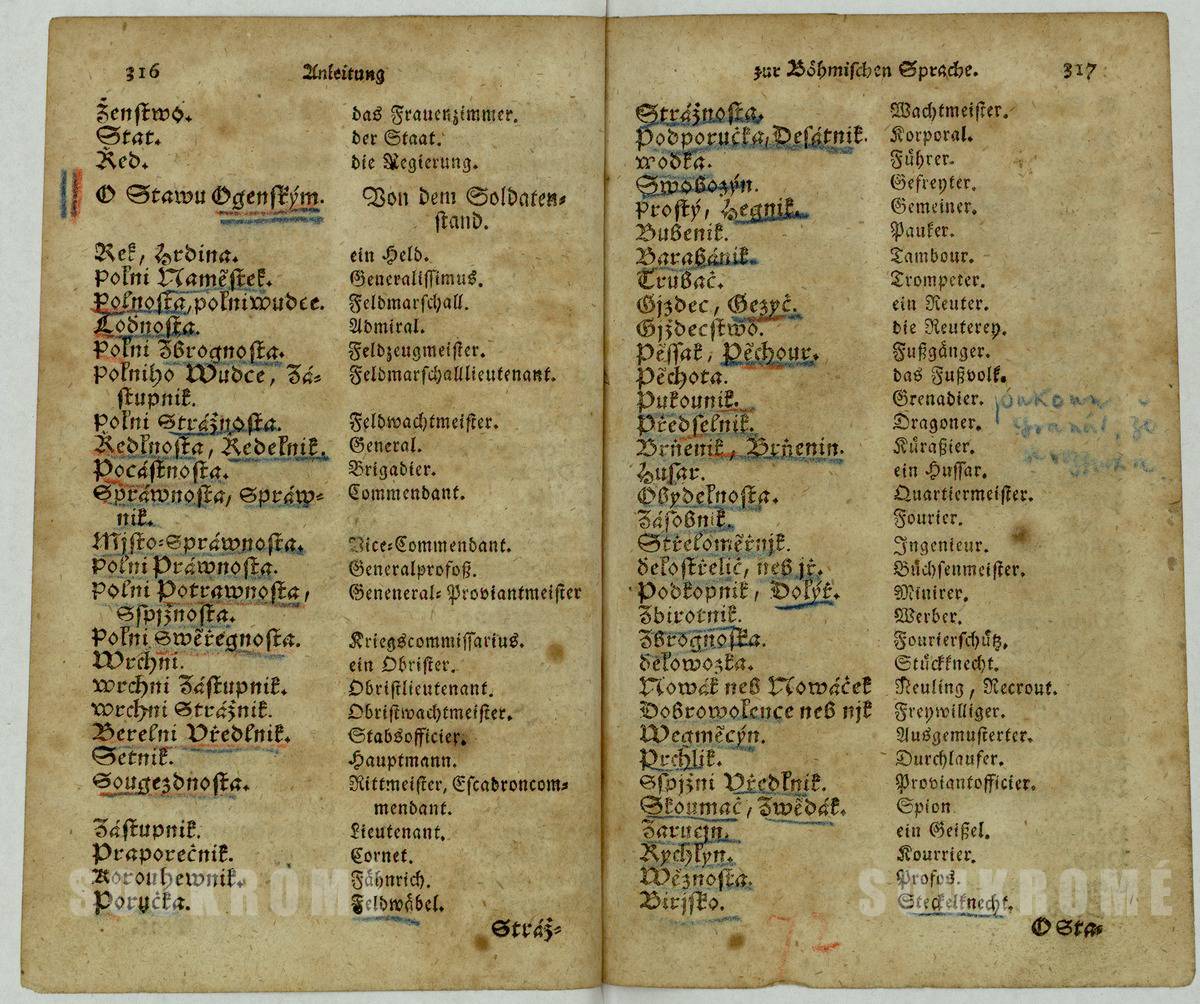 316 Anleitung
Ženstwo. das Frauenzimmer.
Stat. der Staat.
Ržed. die Regierung.
O Stawu Ogenským. Von dem Soldaten-
stand.
Rek, Hrdina. ein Held.
polni Naměstek. Generalissimus.
Polnosta, polniwudce. Feldmarschall.
Lodnosta. Admiral.
Polni Zbrognosta. Feldzeugmeister.
polniho Wudce, Zá- Feldmarschalllieutenant.
stupnik.
polni Strážnosta. Feldwachtmeister.
Ředlnosta, Ředelnik. General.
Počástnosta. Brigadier.
Spráwnosta, Spráw- Commendant.
nik.
Mjsto-Spráwnosta. Vice-Commendant.
polni Práwnosta. Generalprofoß.
polni Potrawnosta, Geneneral-Proviantmeister
Sspjžnosta.
polni Swěřegnosta. Kriegscommissarius.
Wrchni. ein Obrister.
wrchni Zástupnik. Obristlieutenant.
wrchni Strážnik. Obristwachtmeister.
Berelni Vředlnik. Stabsofficier.
Setnik. Hauptmann.
Sougezdnosta. Rittmeister, Escadroncom-
mendant.
Zástupnik. Lieutenant.
Praporečnik. Cornet.
Korouhewnik. Fähnrich.
Poručka. Feldwäbel.
Stráž-
zur Böhmischen Sprache. 317
Strážnosta. Wachtmeister.
Podporučka, Desátnik. Korporal.
wodka. Führer.
Swobozýn. Gefreyter.
prostý, Hegnik. Gemeiner.
Bubenik. Pauker.
Barabánik. Tambour.
Trubač. Trompeter.
Gjzdec, Gezyč. ein Reuter.
Gjzdecstwo. die Reuterey.
Pěssak, Pěchour. Fußgänger.
Pěchota. das Fußvolk.
Pukounik. Grenadier.
Předselnik. Dragoner.
Brňenik, Brňenin. Küraßier.
Husar. ein Hussar.
Obydelnosta. Quartiermeister.
Zásobnik. Fourier.
Střeloměřnjk. Ingenieur.
delostřelič, neb jř. Büchsenmeister.
Podkopnik, Dolýř. Minirer.
Zbirotnik. Werber.
Zbrognoska. Fourierschütz.
delowozka. Stückknecht.
Nowák neb Nowáček Neuling, Recrout.
Dobrowolence neb njk Freywilliger.
Wegměcýn. Ausgemusterter.
Prchlik. Durchlaufer.
Sspjžni Vředlnik. Proviantofficier.
Skoumač, Zwědák. Spion
Zarucjn. ein Geißel.
Rychlyn. Kourrier.
Wěznosta. Profos.
Birjsko. Steckelknecht.
72
O Sta-